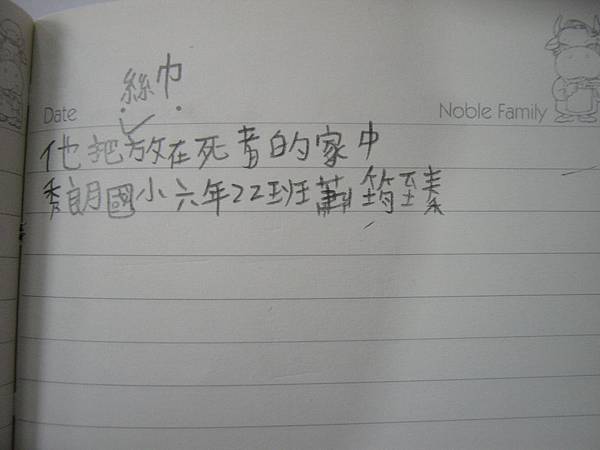 絲巾
Date Noble Family
他把放在死者的家中
秀朗國小六年22班蕭筠臻